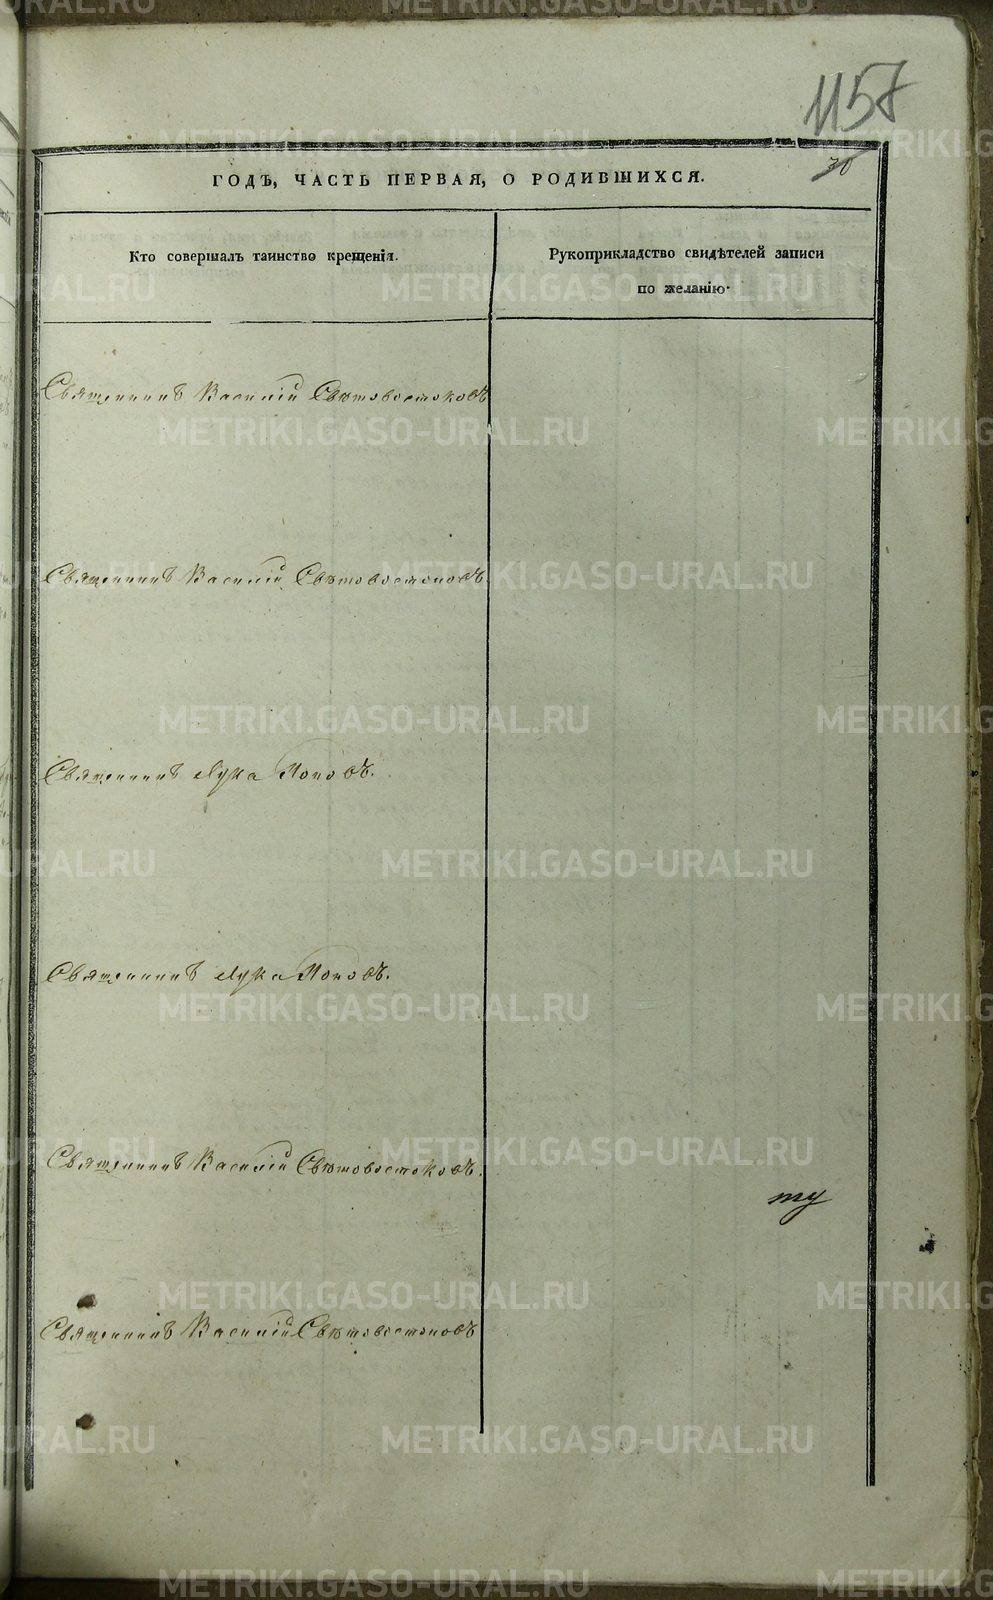 1157
30
ГОДЪ, ЧАСТЬ ПЕРВАЯ, О РОДИВШИХСЯ.
Кто совершалъ таинство крещенія.
Рукоприкладство свидѣтелей записи
по желанію.
Священникъ Василій Свѣтовостоковъ
Священникъ Василій Свѣтовостоковъ
Священникъ Лука Поповъ.
Священникъ Лука Поповъ.
Священникъ Василій Свѣтовостоковъ.
ту
Священникъ Василій Свѣтовостоковъ
METRIKI.GASO-URAL.RU